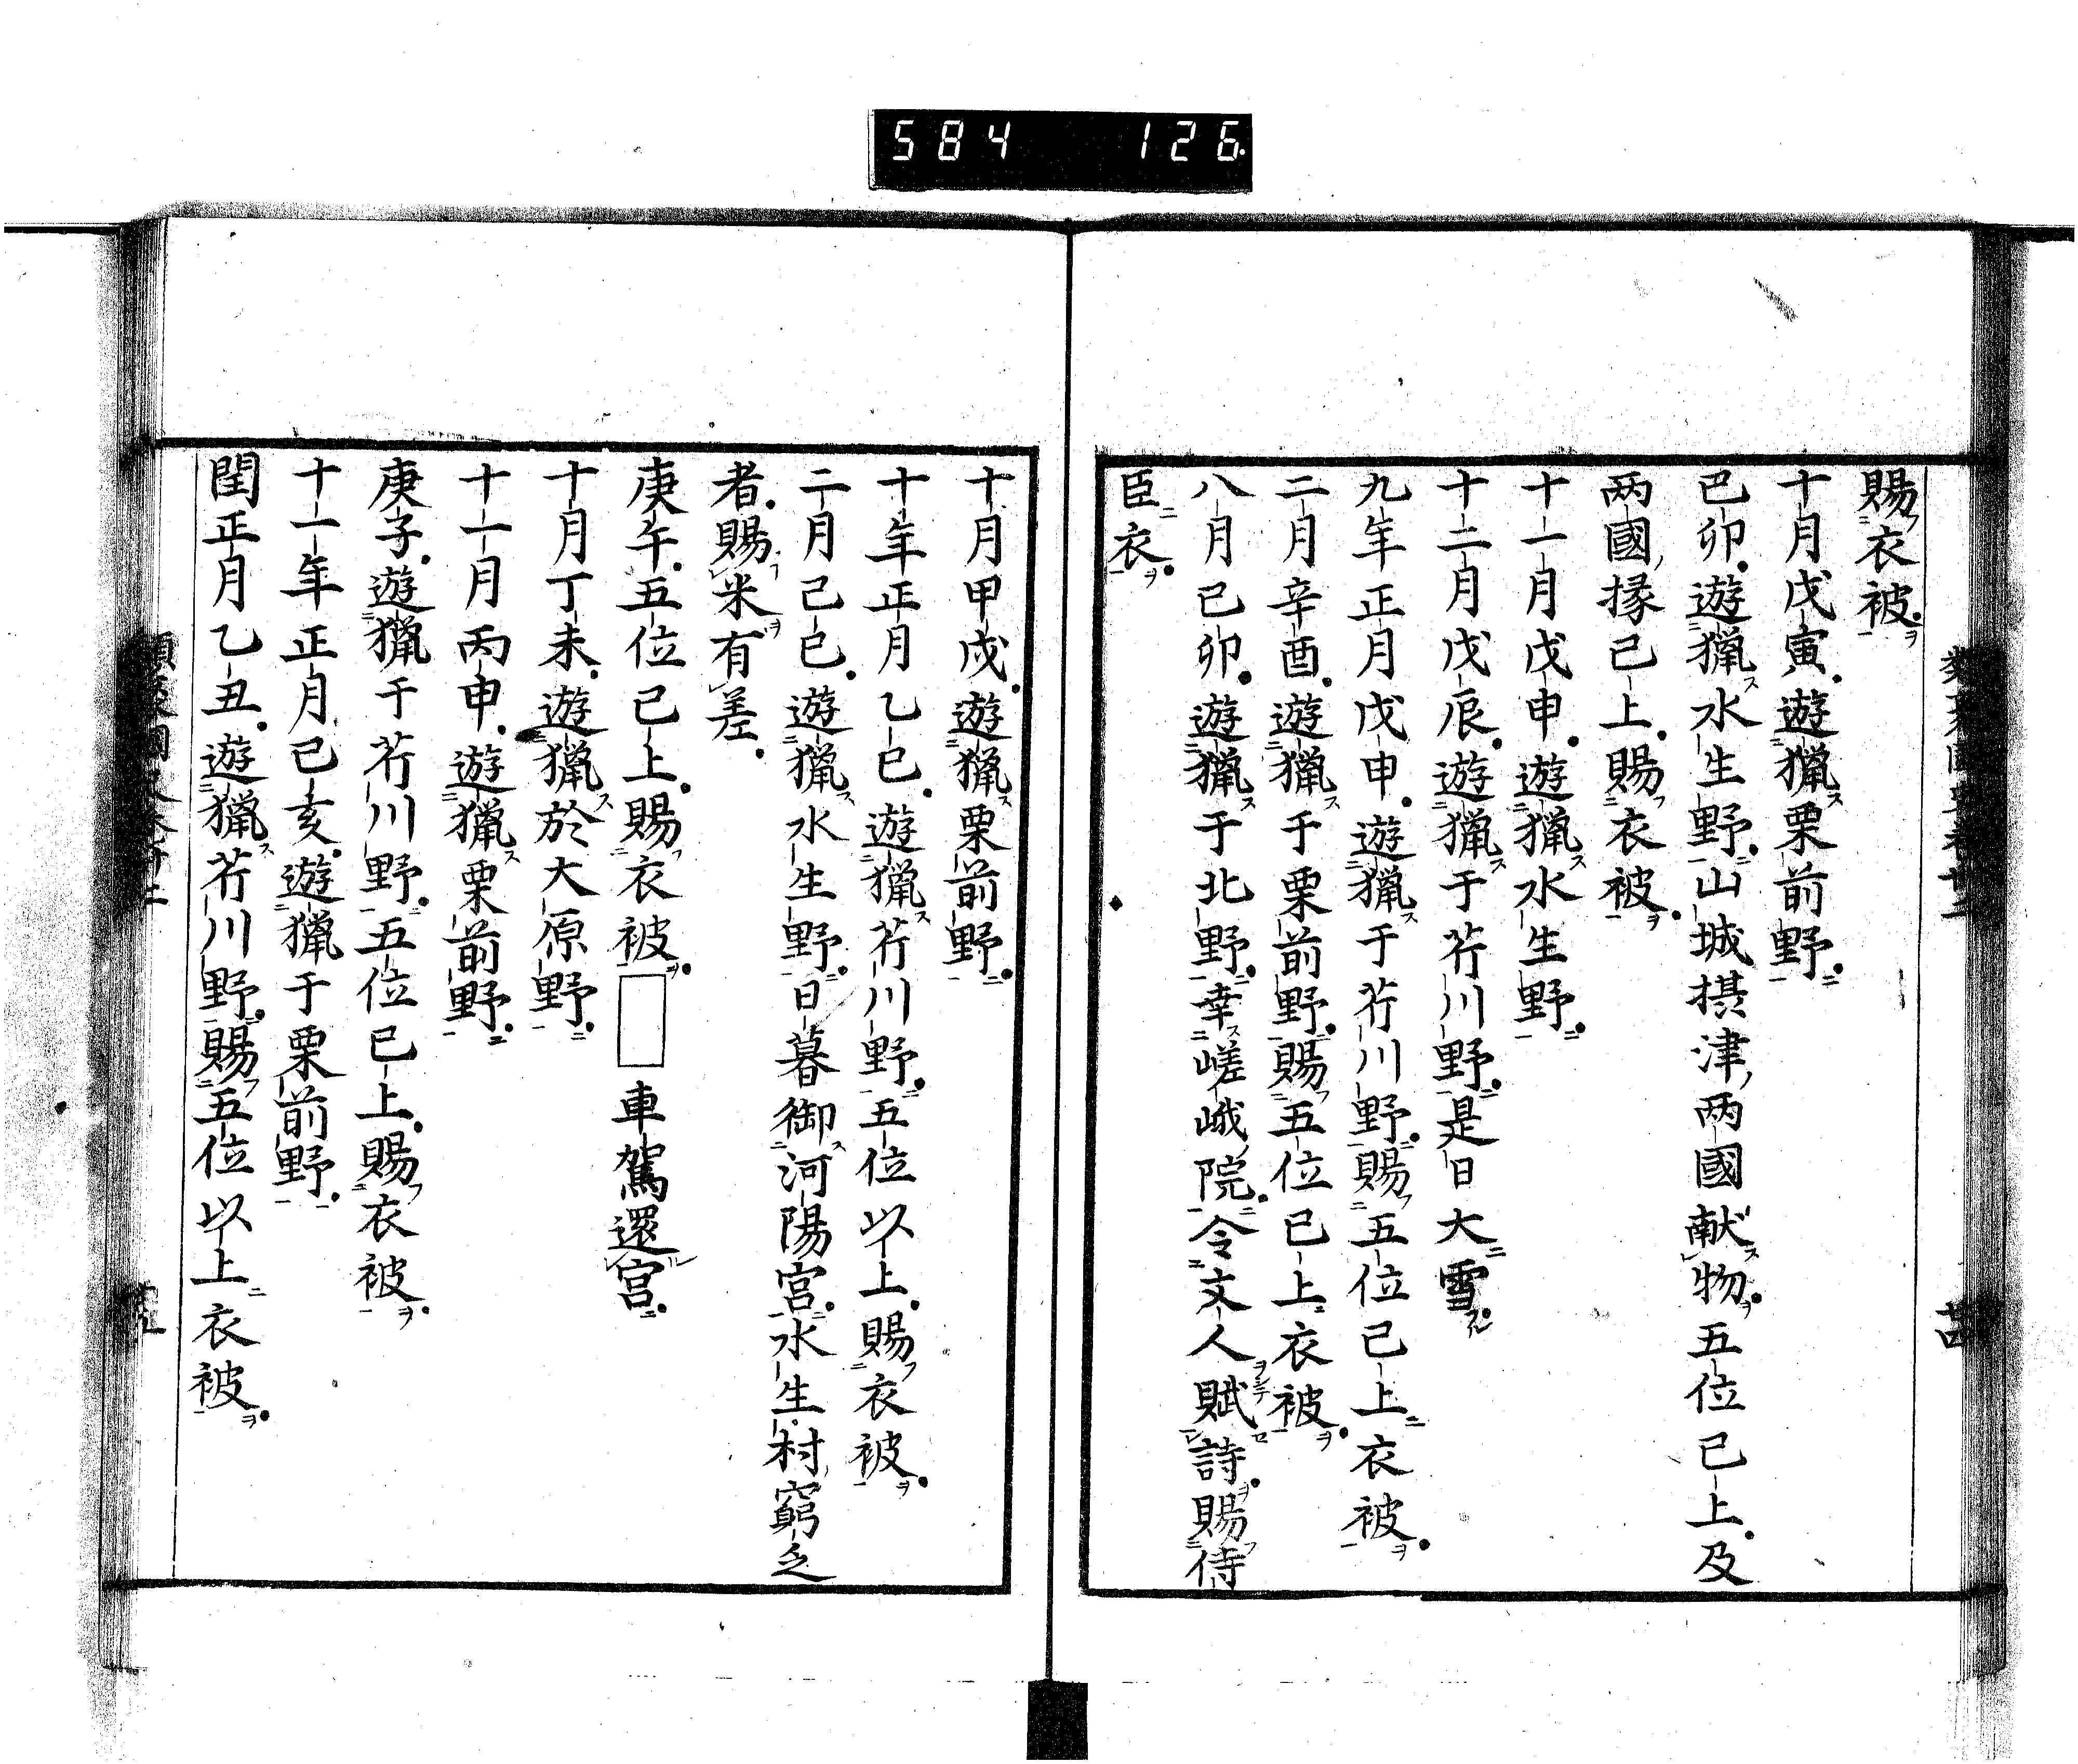 584 126
賜衣被
十月戊寅遊猟栗前野
己卯遊猟水生野山城摂津両國献物五位已上及
両國掾已上賜衣被
十一月戊申遊猟水生野
十二月戊辰遊猟于芥川野是日大雪
九年正月戊申遊猟于芥川野賜五位已上衣被
二月辛酉遊猟于栗前野賜五位已上衣被
八月己卯遊猟于北野幸嵯峨院令文人賦詩賜侍
臣衣
十月甲戌遊猟栗前野
十年正月乙巳遊猟芥川野五位以上賜衣被
二月己巳遊猟水生野日暮御河陽宮水生村窮乏
者賜米有差
庚午五位已上賜衣被□車駕還宮
十月丁未遊猟於大原野
十一月丙申遊猟栗前野
庚子遊猟于芥川野五位已上賜衣被
十一年正月己亥遊猟于栗前野
閏正月乙丑遊猟芥川野賜五位以上衣被